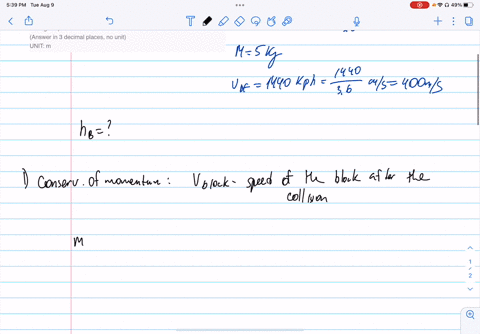 5:39 PM Tue Aug 9
49%
(Answer in 3 decimal places, no unit)
UNIT: m
M = 5 kg
= 1440 kph = 1440/3,6 m/s = 400 m/s
h_B = ?
1) Conserv. of momentum: V_block - speed of the block after the
collision
M
1
2